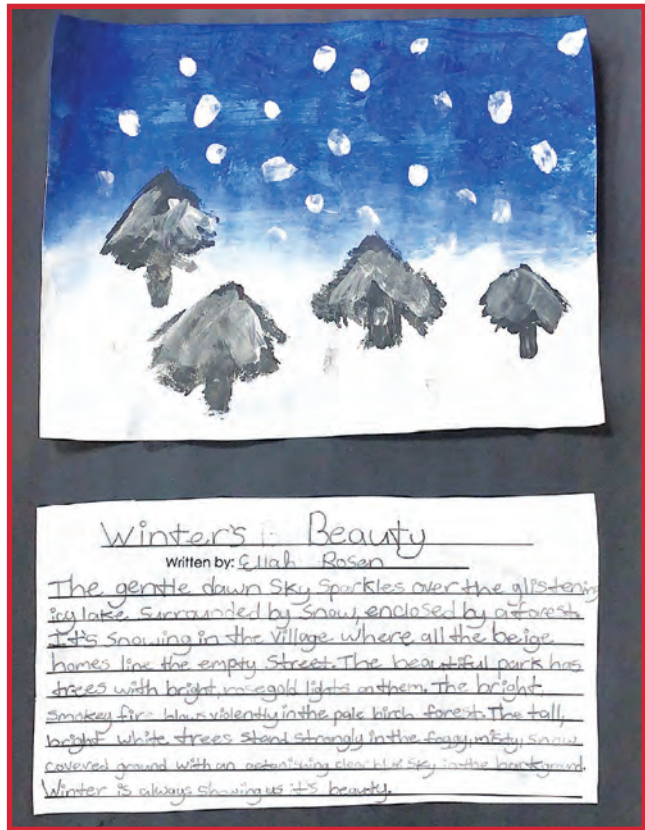 Winter's Beauty
Written by: Ellah Rosen
The gentle dawn sky sparkles over the glistening
icy lake surrounded by snow, enclosed by a forest.
It's snowing in the village where all the beige
homes line the empty street. The beautiful park has
trees with bright, rosegold lights on them. The bright
smokey fire blows violently in the pale birch forest. The tall,
bright white trees stand strongly in the foggy, misty, snow
covered ground with an astonishing clear blue sky in the background.
Winter is always showing us it's beauty.